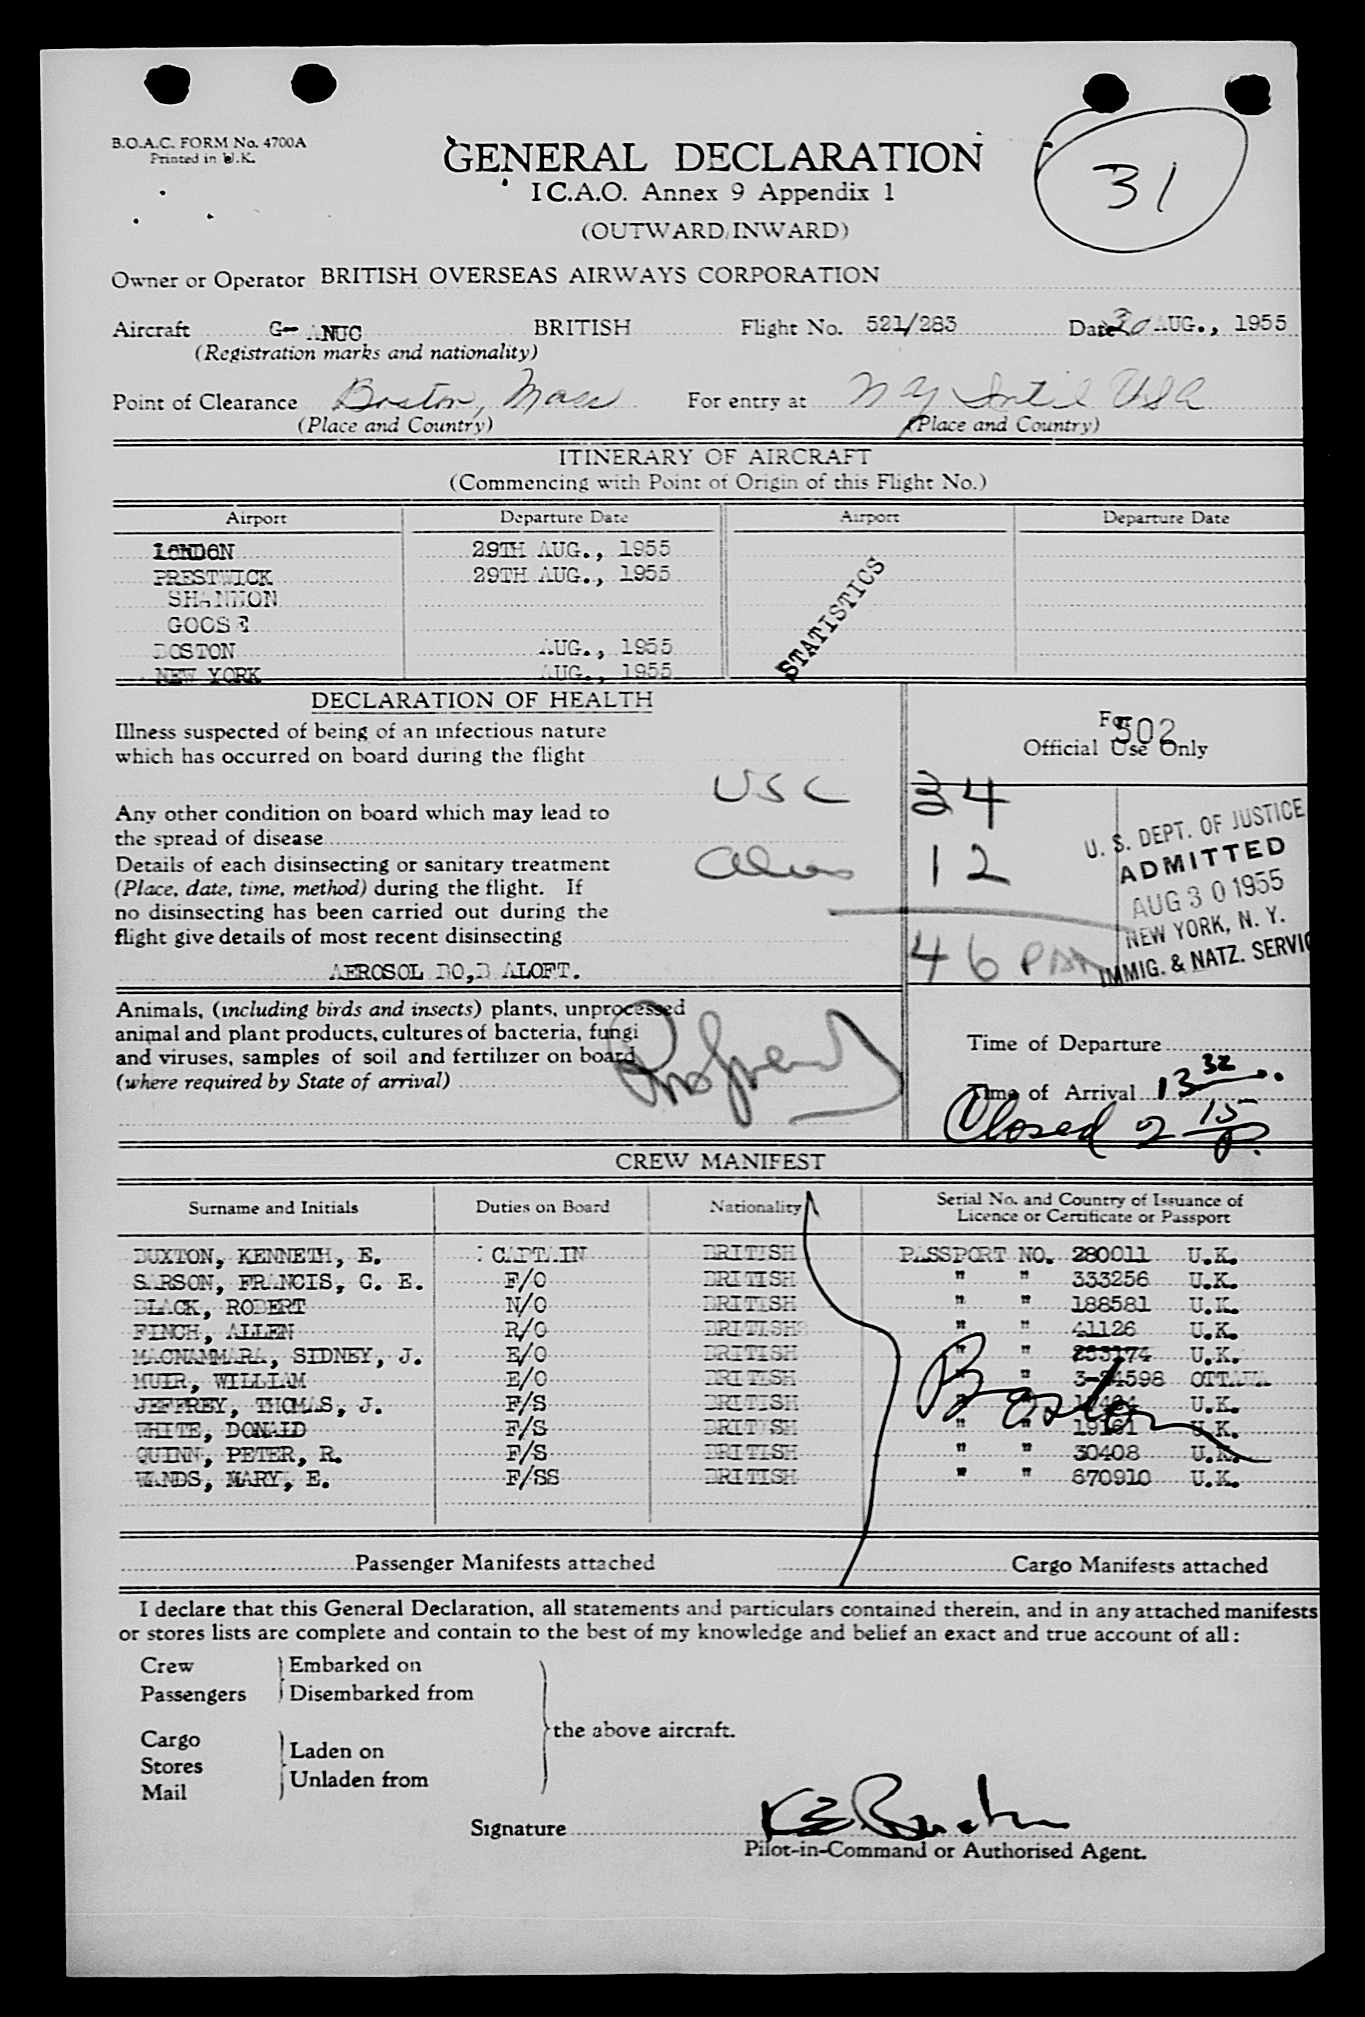 B.O.A.C. FORM No. 4700A
Printed in U.K.
GENERAL DECLARATION
I C.A.O. Annex 9 Appendix 1
(OUTWARD/INWARD)
31
Owner or Operator BRITISH OVERSEAS AIRWAYS CORPORATION
Aircraft G- ANUC BRITISH Flight No. 521/283 Date 30 AUG., 1955
(Registration marks and nationality)
Point of Clearance Boston, Mass For entry at N Y Int'l USA
(Place and Country) (Place and Country)
ITINERARY OF AIRCRAFT
(Commencing with Point of Origin of this Flight No.)
Airport Departure Date Airport Departure Date
LONDON 29TH AUG., 1955
PRESTWICK 29TH AUG., 1955
SHANNON
GOOSE
BOSTON AUG., 1955
NEW YORK AUG., 1955
STATISTICS
DECLARATION OF HEALTH
Illness suspected of being of an infectious nature
which has occurred on board during the flight
Any other condition on board which may lead to
the spread of disease
Details of each disinsecting or sanitary treatment
(Place, date, time, method) during the flight. If
no disinsecting has been carried out during the
flight give details of most recent disinsecting
AEROSOL BO,B ALOFT.
For
502
Official Use Only
USC 34
Aliens 12
46 PAX
U. S. DEPT. OF JUSTICE
ADMITTED
AUG 30 1955
NEW YORK, N. Y.
IMMIG. & NATZ. SERVIC
Animals, (including birds and insects) plants, unprocessed
animal and plant products, cultures of bacteria, fungi
and viruses, samples of soil and fertilizer on board
(where required by State of arrival)
Time of Departure
Time of Arrival 13 32
Closed 2 15 P.
CREW MANIFEST
Surname and Initials Duties on Board Nationality Serial No. and Country of Issuance of
Licence or Certificate or Passport
BUXTON, KENNETH, E. CAPTAIN BRITISH PASSPORT NO. 280011 U.K.
SARSON, FRANCIS, C. E. F/O BRITISH " " 333256 U.K.
BLACK, ROBERT N/O BRITISH " " 188581 U.K.
FINCH, ALLEN R/O BRITISH " " 41126 U.K.
MACNAMMARA, SIDNEY, J. E/O BRITISH " " 253174 U.K.
MUIR, WILLIAM E/O BRITISH " " 3-24598 OTTAWA
JEFFREY, THOMAS, J. F/S BRITISH " " U.K.
WHITE, DONALD F/S BRITISH " " 19161 U.K.
QUINN, PETER, R. F/S BRITISH " " 30408 U.K.
WANDS, MARY, E. F/SS BRITISH " " 670910 U.K.
Boston
Passenger Manifests attached Cargo Manifests attached
I declare that this General Declaration, all statements and particulars contained therein, and in any attached manifests
or stores lists are complete and contain to the best of my knowledge and belief an exact and true account of all:
Crew Embarked on
Passengers Disembarked from
the above aircraft.
Cargo
Stores Laden on
Mail Unladen from
Signature K E Buxton
Pilot-in-Command or Authorised Agent.